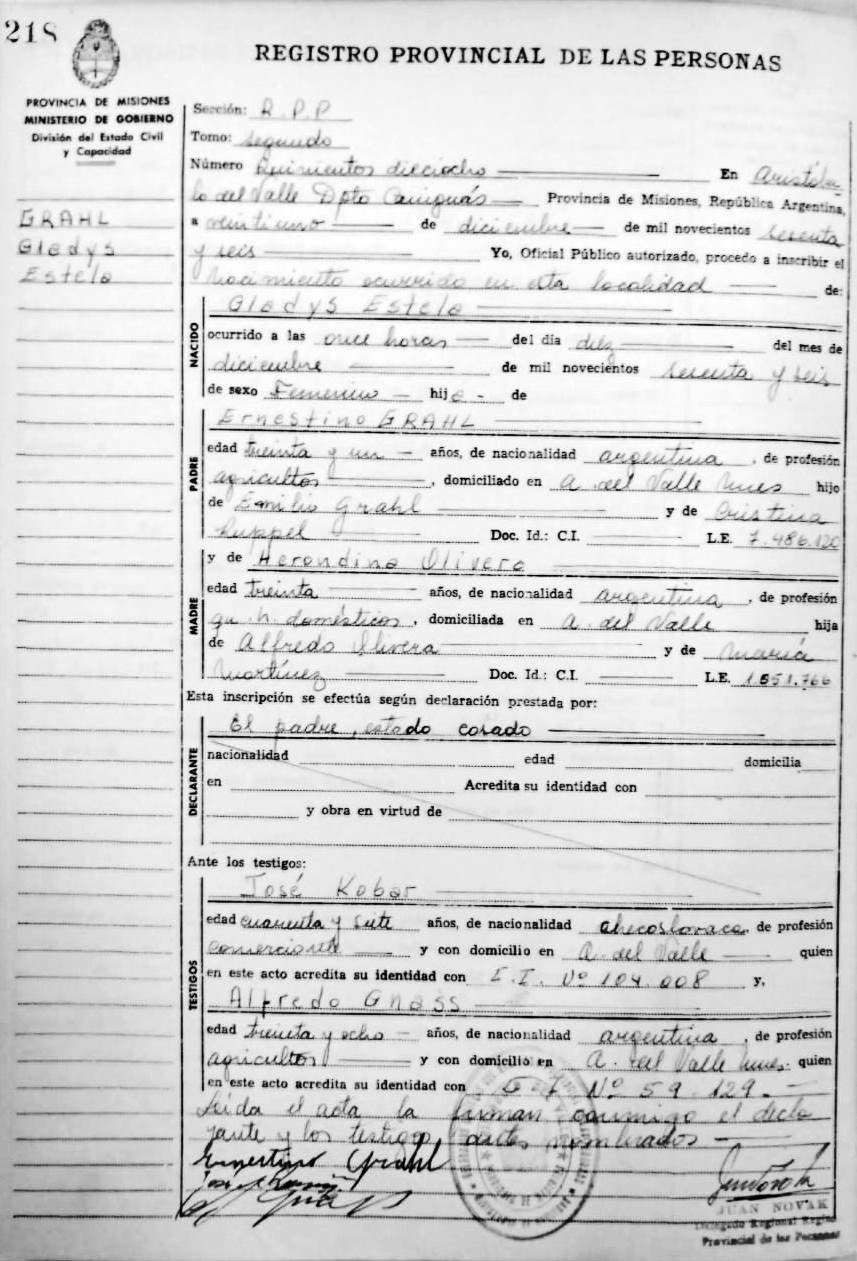 218
REGISTRO PROVINCIAL DE LAS PERSONAS
PROVINCIA DE MISIONES
MINISTERIO DE GOBIERNO
División del Estado Civil
y Capacidad
GRAHL
Gladys
Estela
Sección: R.P.P
Tomo: segundo
Número Quinientos dieciocho En Aristóbu-
lo del Valle Dpto Cainguás Provincia de Misiones, República Argentina,
a veintiuno de diciembre de mil novecientos sesenta
y seis Yo, Oficial Público autorizado, procedo a inscribir el
nacimiento ocurrido en esta localidad de:
NACIDO
Gladys Estela
ocurrido a las once horas del día diez del mes de
diciembre de mil novecientos sesenta y seis
de sexo Femenino hija - de
PADRE
Ernestino GRAHL
edad treinta y un años, de nacionalidad argentina, de profesión
agricultor, domiciliado en A. del Valle Mnes hijo
de Emilio Grahl y de Cristina
Ruppel Doc. Id.: C.I. L.E. 7.486.120
MADRE
y de Herondina Olivera
edad treinta años, de nacionalidad argentina, de profesión
qu. h. domésticos, domiciliada en A. del Valle hija
de Alfredo Olivera y de María
Martínez Doc. Id.: C.I. L.E. 1.651.766
Esta inscripción se efectúa según declaración prestada por:
DECLARANTE
El padre, estado casado
nacionalidad edad domicilia
en Acredita su identidad con
y obra en virtud de
Ante los testigos:
TESTIGOS
José Kobar
edad cuarenta y siete años, de nacionalidad checoslovaca, de profesión
comerciante y con domicilio en A. del Valle quien
en este acto acredita su identidad con C.I. Nº 104.008 y,
Alfredo Gnass
edad treinta y ocho años, de nacionalidad argentina, de profesión
agricultor y con domicilio en A. del Valle Mnes. quien
en este acto acredita su identidad con C.I Nº 59.129.-
Leída el acta la firman conmigo el decla
rante y los testigos antes nombrados
Ernestino Grahl
JUAN NOVAK
Delegado Regional Registro
Provincial de las Personas